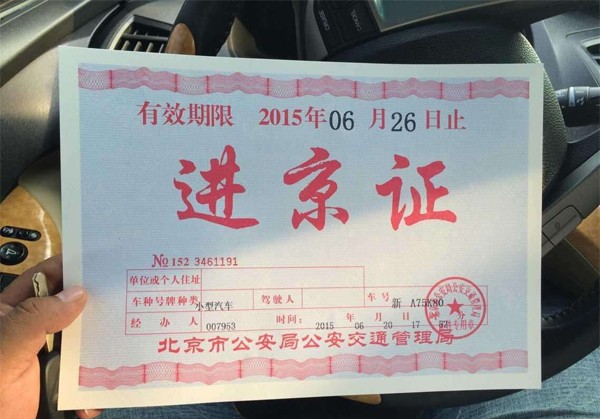 有效期限 2015年06月26日止
进京证
№ 152 3461191
单位或个人住址
车种号牌种类 小型汽车 驾驶人 车号 新 A75K80
经办人 007953 时间: 2015 年 06 月 20 日 17
北京市公安局公安交通管理局